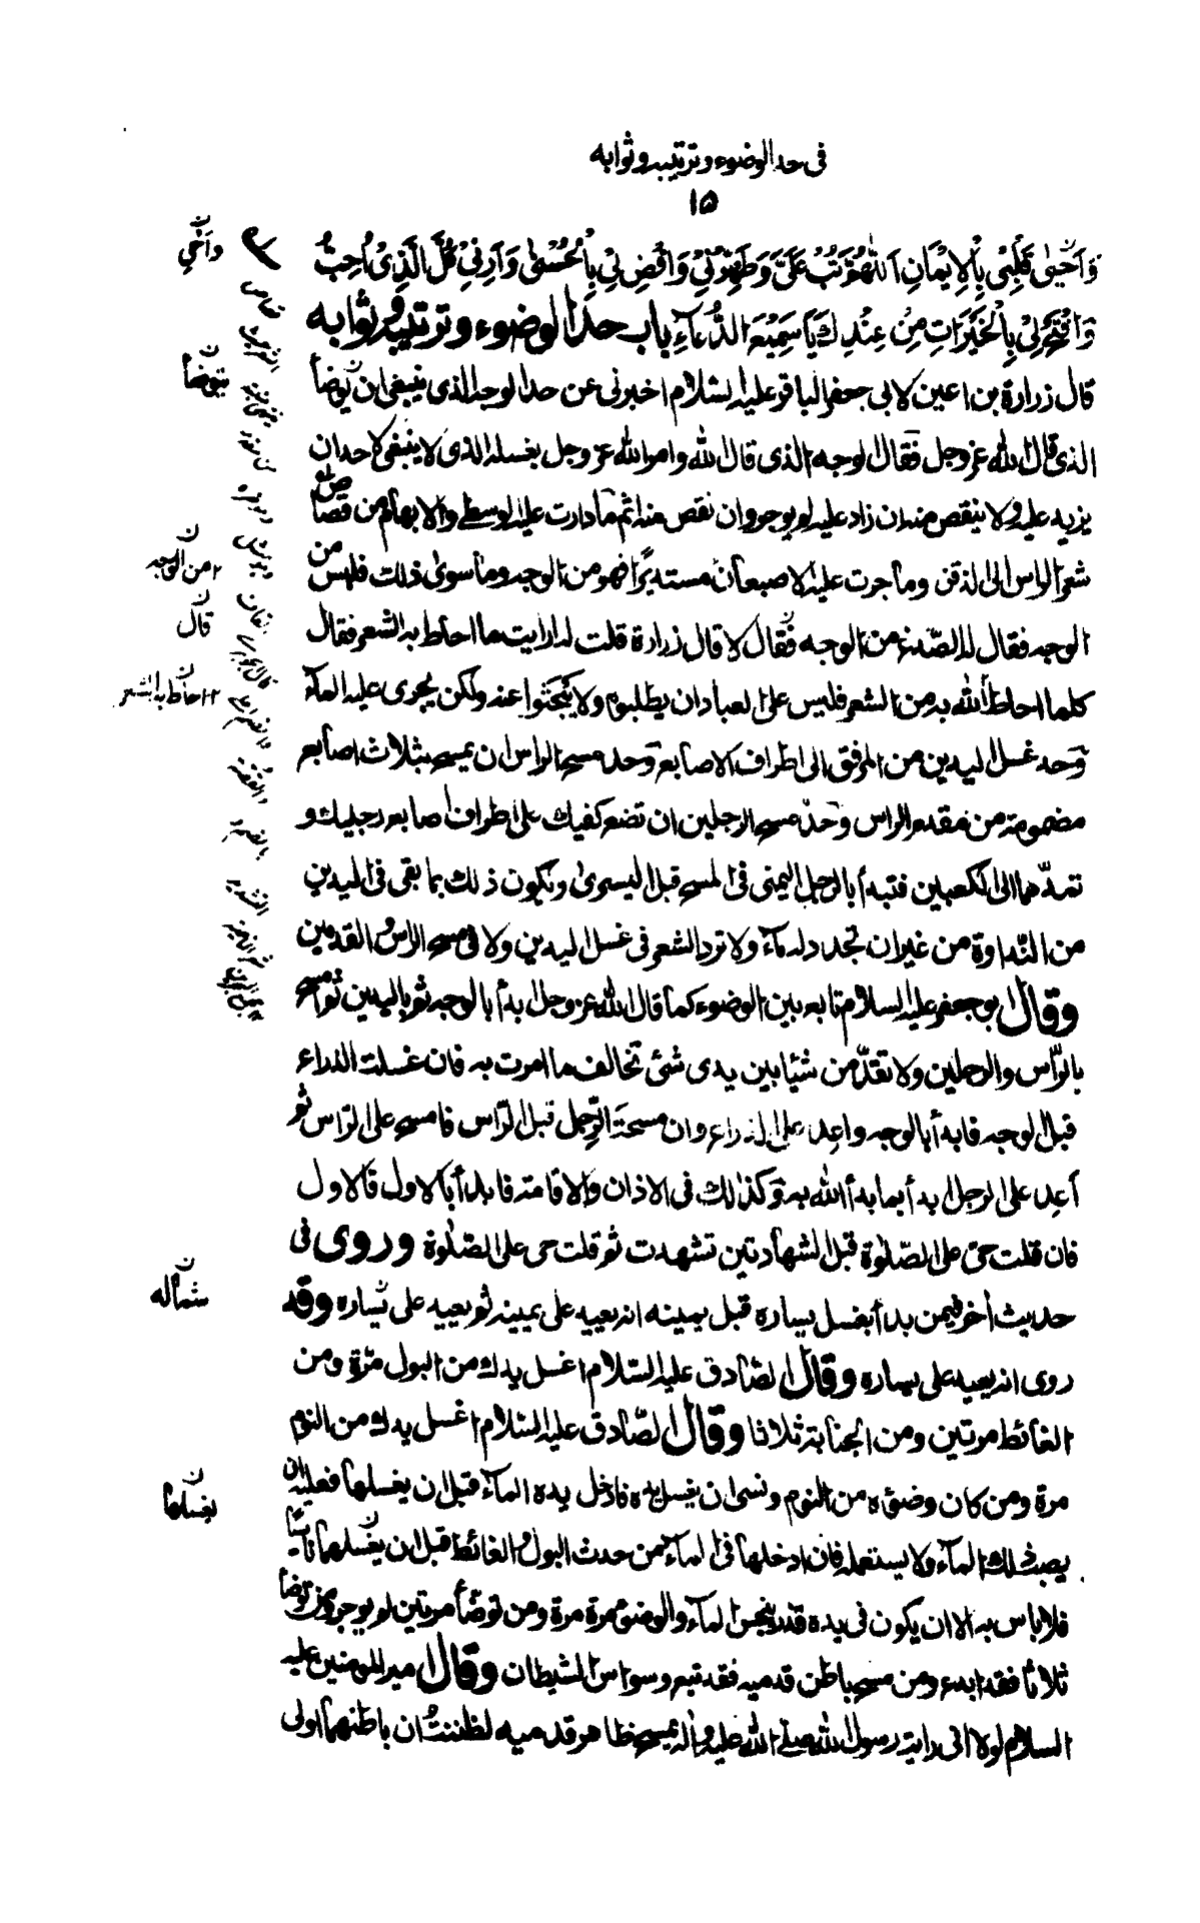 في حد الوضوء وترتيبه وثوابه
١٥
وَاَحْيِىٰ قَلْبِى بِالْاِيْمَانِ اَللّٰهُمَّ تُبْ عَلَىَّ وَطَهِّرْنِيْ وَاقْضِ لِيْ بِالْحُسْنىٰ وَاَرِنِيْ كُلَّ الَّذِىْ اُحِبُّ
وَافْتَحْ لِيْ بِالْخَيْرَاتِ مِنْ عِنْدِكَ يَا سَمِيْعَ الدُّعَآءِ باب حد الوضوء وترتيبه وثوابه
قال زرارة بن اعين لابى جعفر الباقر عليه السلام اخبرنى عن حد الوجه الذى ينبغى ان يوضأ
الذى قال الله عز وجل فقال الوجه الذى قال الله وامر الله عز وجل بغسله الذى لا ينبغى لاحد ان
يزيد عليه ولا ينقص منه ان زاد عليه لم يوجر وان نقص منه اثم ما دارت عليه الوسطى والابهام من قصاص
شعر الراس الى الذقن وما جرت عليه الاصبعان مستديرًا فهو من الوجه وما سوى ذلك فليس من
الوجه فقال له الصّدغ من الوجه فقال لا قال زرارة قلت له ارايت ما احاط به الشعر فقال
كلما احاط الله به من الشعر فليس على العباد ان يطلبوه ولا يبحثوا عنه ولكن يجرى عليه المآء
وحد غسل اليدين من المرفق الى اطراف الاصابع وحد مسح الراس ان يمسح بثلاث اصابع
مضمومة من مقدم الراس وحدّ مسح الرجلين ان تضع كفيك على اطراف اصابع رجليك و
تمدّهما الى الكعبين فتبدأ بالرجل اليمنى فى المسح قبل اليسرى ويكون ذلك بما بقى فى اليدين
من النّداوة من غير ان تجدد له مآء ولا ترد الشعر فى غسل اليدين ولا فى مسح الراس والقدمين
وقال ابو جعفر عليه السلام تابع بين الوضوء كما قال الله عز وجل ابدأ بالوجه ثم باليدين ثم امسح
بالرّاس والرجلين ولا تقدّمن شيئا بين يدى شئ تخالف ما امرت به فان غسلت الذراع
قبل الوجه فابدأ بالوجه واعد على الذراع وان مسحت الرّجل قبل الرّاس فامسح على الرّاس ثم
أعد على الرجل ابدأ بما بدأ الله به وكذلك فى الاذان والاقامة فابدأ بالاول فالاول
فان قلت حىّ على الصّلوة قبل الشهادتين تشهدت ثم قلت حى على الصّلوة وروى فى
حديث أخر فيمن بدأ بغسل يساره قبل يمينه انه يعيد على يمينه ثم يعيد على يساره وقد
روى انه يعيد على يساره وقال الصّادق عليه السّلام اغسل يدك من البول مرّة ومن
الغائط مرتين ومن الجنابة ثلاثا وقال الصّادق عليه السّلام اغسل يدك من النوم
مرة ومن كان وضوءه من النوم ونسى ان يغسل يده فادخل يده المآء قبل ان يغسلها فعليه ان
يصب ذلك المآء ولا يستعمله فان ادخلها فى المآء من حدث البول والغائط قبل ان يغسلهما ناسيا
فلا باس به الا ان يكون فى يده قذر ينجس المآء والوضوء مرة مرة ومن توضّأ مرتين لم يوجر ومن توضأ
ثلاثا فقد ابدع ومن مسح باطن قدميه فقد تبع وسواس الشيطان وقال امير المومنين عليه
السلام لولا انى رايت رسول الله صلى الله عليه واله يمسح ظاهر قدميه لظننتُ ان باطنهما اولى
وَاَحْيِ
يتوضأ
من الوجه
قال
احاط به الشعر
شماله
يغسلها